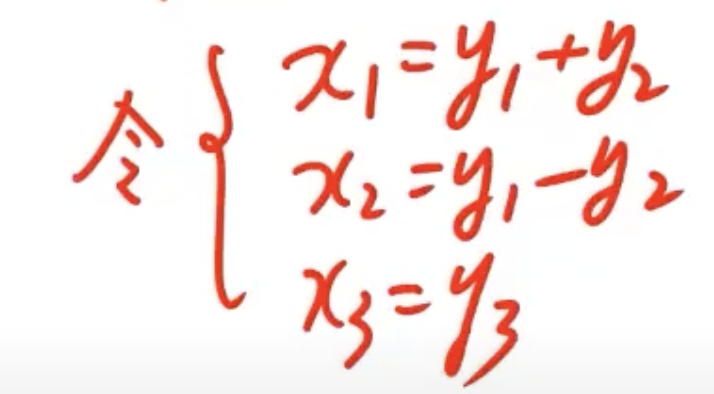 令 { x₁ = y₁ + y₂
x₂ = y₁ - y₂
x₃ = y₃